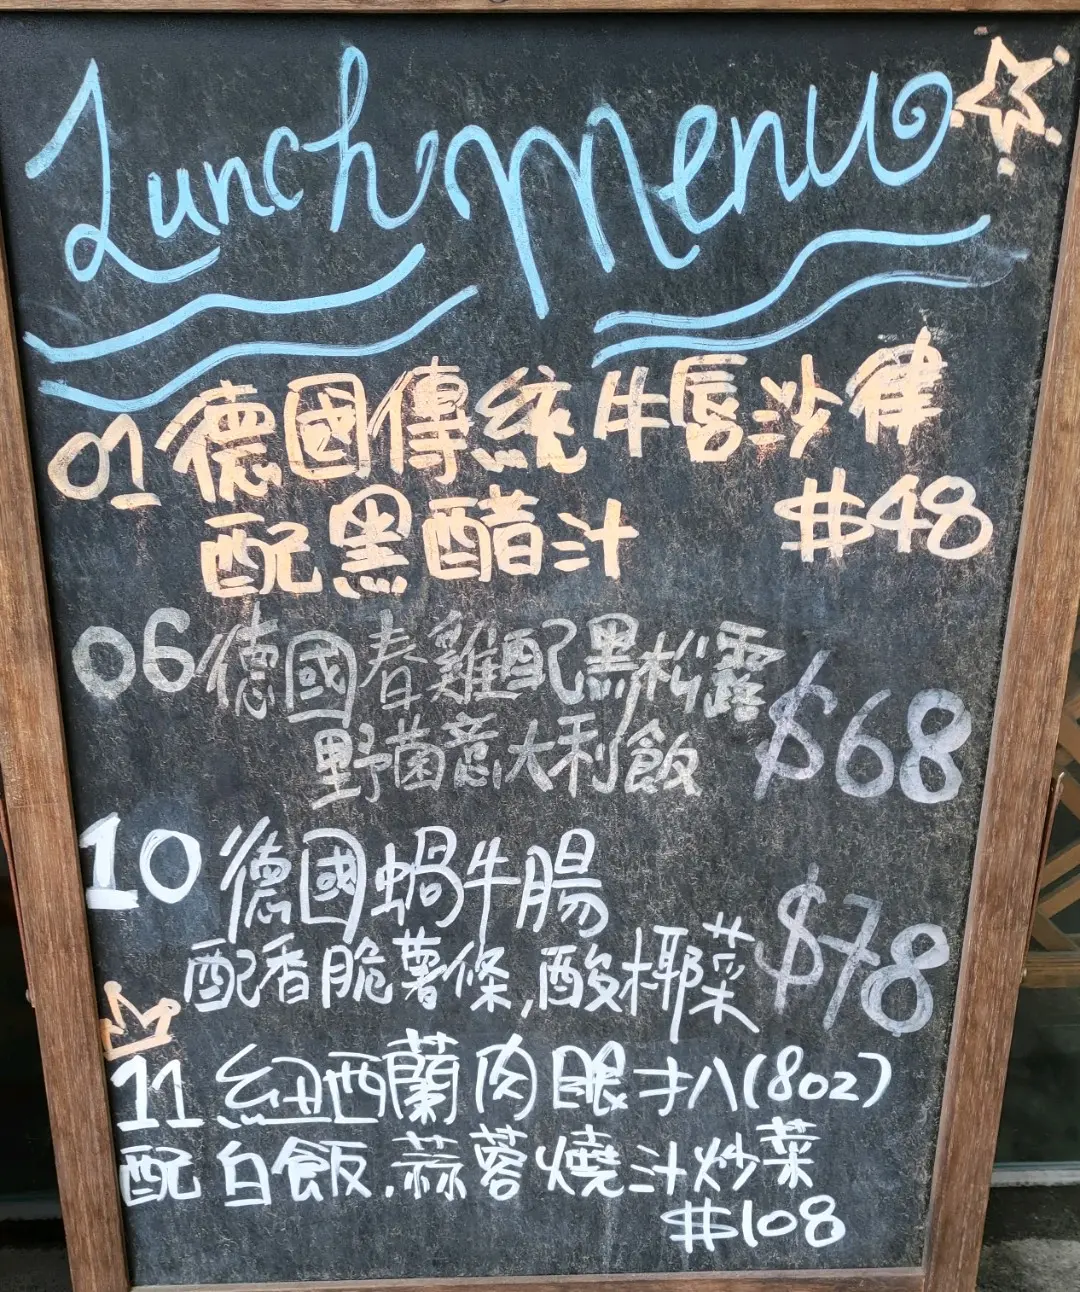 Lunch Menu
01 德國傳統牛唇沙律
配黑醋汁 $48
06 德國春雞配黑松露
野菌意大利飯 $68
10 德國蝸牛腸
配香脆薯條,酸椰菜 $78
11 紐西蘭肉眼扒(8oz)
配白飯.蒜蓉燒汁炒菜
$108